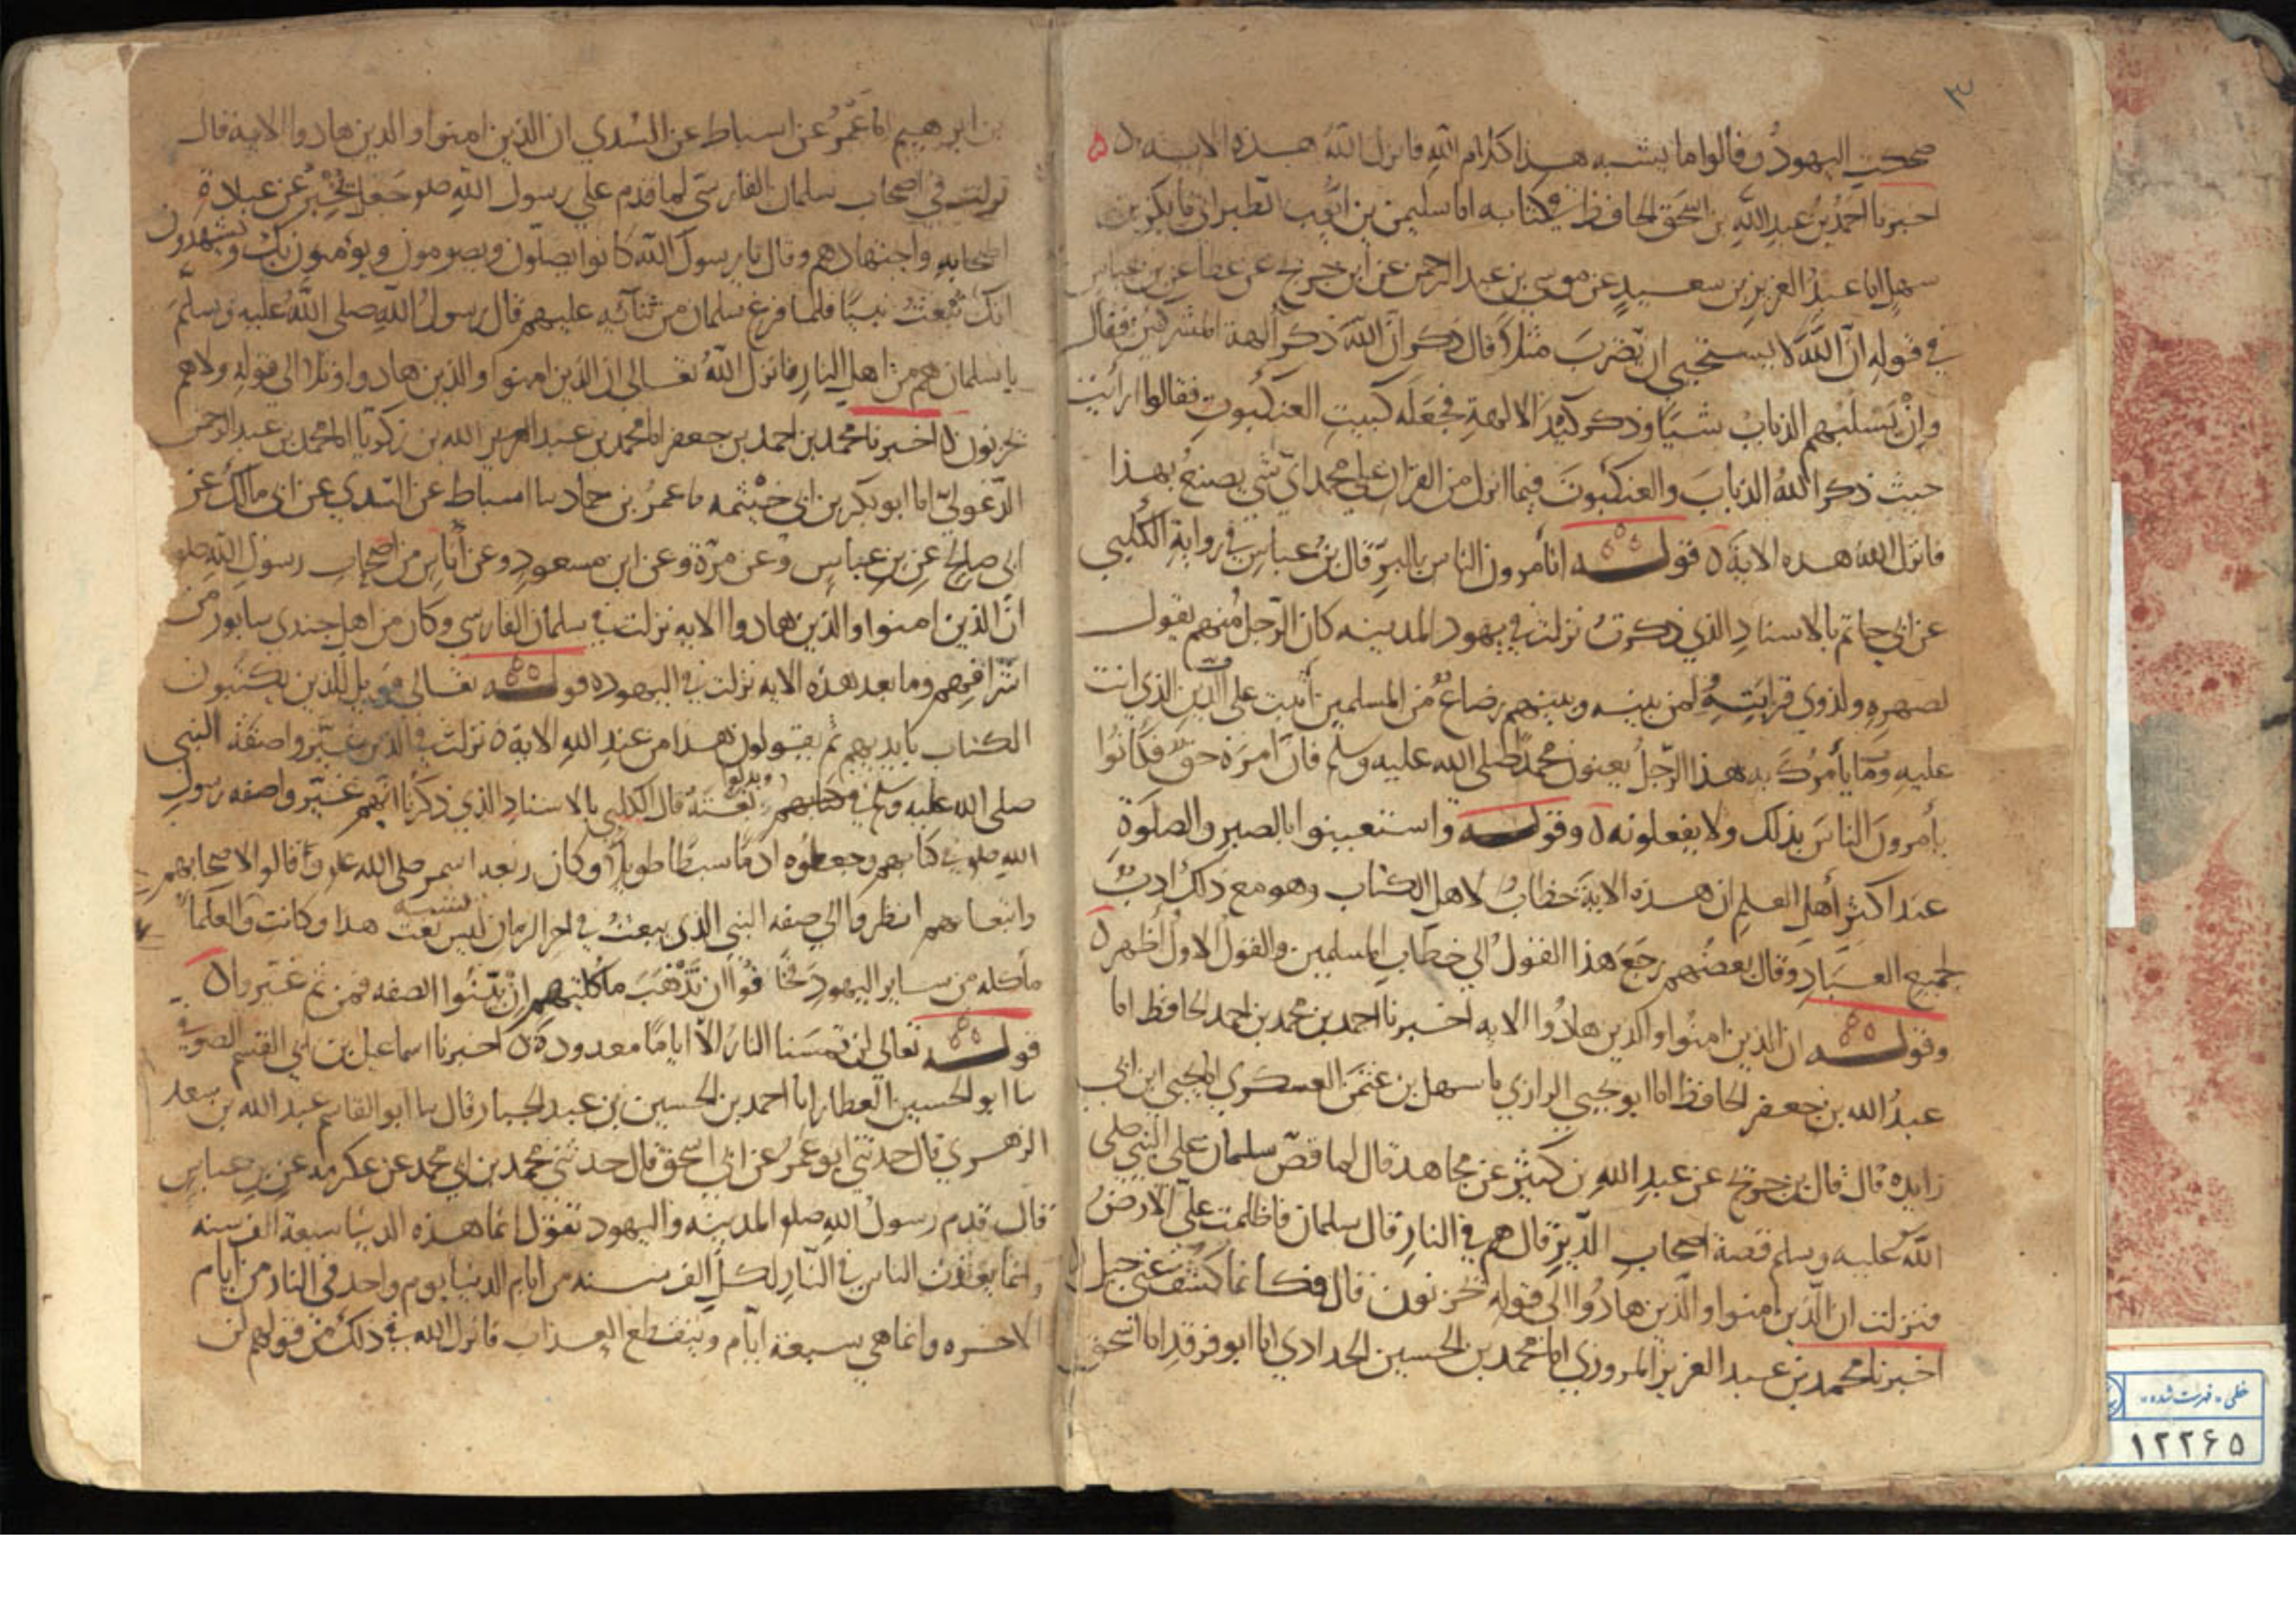 ٣
ضحكت اليهود وقالوا ما يشبه هذا كلام الله فانزل الله هذه الاية
اخبرنا احمد بن عبد الله بن اسحق الحافظ في كتابه انا سليمن بن ايوب الطبراني نا بكر بن
سهل نا عبد العزيز بن سعيد عن موسى بن عبد الرحمن عن ابن جريج عن عطا عن بن عباس
في قوله ان الله لا يستحيي ان يضرب مثلا قال وذكر ان الله ذكر الهة المشركين فقال
وان يسلبهم الذباب شيئا وذكر كيد الالهة فجعله كبيت العنكبوت فقالوا ارأيت
حيث ذكر الله الذباب والعنكبوت فيما انزل من القران على محمد اي شي يصنع بهذا
فانزل الله هذه الاية ٥ قوله اتأمرون الناس بالبر قال بن عباس في رواية الكلبي
عن ابي حاتم بالاسناد الذي ذكرت نزلت في يهود المدينه كان الرجل منهم يقول
لصهره ولذوي قرابته ولمن بينه وبينهم رضاع من المسلمين أثبت على الدين الذي انت
عليه وما يأمرك به هذا الرجل يعنون محمدا صلى الله عليه وسلم فان امره حق فكانوا
يأمرون الناس بذلك ولا يفعلونه ٥ وقوله واستعينوا بالصبر والصلوة
عند اكثر أهل العلم ان هذه الاية خطاب لاهل الكتاب وهو مع ذلك ادب
لجميع العباد وقال بعضهم رجع هذا القول الى خطاب المسلمين والقول الاول أظهر ٥
وقوله ان الذين امنوا والذين هادوا الايه اخبرنا احمد بن محمد بن احمد الحافظ انا
عبد الله بن جعفر الحافظ انا ابو يحيى الرازي نا سهل بن عثمن العسكري نا يحيى ابن ابي
زايده قال قال بن جريج عن عبد الله بن كثير عن مجاهد قال لما قص سلمان على النبي صلى
الله عليه وسلم قصة اصحاب الدير قال هم في النار قال سلمان فاظلمت علي الارض
فنزلت ان الذين امنوا والذين هادوا الى قوله يحزنون قال فكانما كشف عني جبل
اخبرنا محمد بن عبد العزيز المروزي انا محمد بن الحسين الحدادي انا ابو فرقد انا اسحق
بن ابرهيم انا عمرو عن اسباط عن السدي ان الذين امنوا والذين هادوا الاية قال
نزلت في اصحاب سلمان الفارسي لما قدم على رسول الله صلم جعل يخبر عن عبادة
اصحابه واجتهادهم وقال يا رسول الله كانوا يصلون ويصومون ويؤمنون بك ويشهدون
انك تبعث نبيا فلما فرغ سلمان من ثنائه عليهم قال رسول الله صلى الله عليه وسلم
يا سلمان هم من اهل النار فانزل الله تعالى ان الذين امنوا والذين هادوا وتلا الى قوله ولا هم
يحزنون ٥ اخبرنا محمد بن احمد بن جعفر انا محمد بن عبد الله بن زكريا انا محمد بن عبد الرحمن
الدغولي انا ابو بكر بن ابي خيثمه نا عمرو بن حماد نا اسباط عن السدي عن ابي مالك عن
ابي صالح عن بن عباس وعن مرة وعن ابن مسعود وعن أناس من اصحاب رسول الله صلم
ان الذين امنوا والذين هادوا الايه نزلت في سلمان الفارسي وكان من اهل جندي سابور من
اشرافهم وما بعد هذه الايه نزلت في اليهود ٥ قوله تعالى فويل للذين يكتبون
الكتاب بايديهم ثم يقولون هذا من عند الله الاية ٥ نزلت في الذين غيروا صفة النبي
صلى الله عليه وسلم في كتابهم وبدلوا نعته قال الكلبي بالاسناد الذي ذكرنا انهم غيروا صفه رسول
الله صلم في كتابهم وجعلوه ادم سبطا طويلا وكان ربعه اسمر صلى الله عليه وقالوا لاصحابهم
واتباعهم انظروا الى صفه النبي الذي يبعث في اخر الزمان ليس يشبه نعت هذا وكانت والعلما
مأكله من ساير اليهود فخافوا ان تذهب مأكلتهم ان بينوا الصفه فمن ثم غيروا ٥
قوله تعالى لن تمسنا النار الا اياما معدودة ٥ اخبرنا اسماعيل بن ابي القسم الصوفي
نا ابو الحسين العطار انا احمد بن الحسين بن عبد الجبار قال نا ابو القاسم عبد الله بن سعد
الزهري قال حدثني ابو عمر عن ابي اسحق قال حدثني محمد بن ابي محمد عن عكرمه عن بن عباس
قال قدم رسول الله صلم المدينه واليهود تقول انما هذه الدنيا سبعة الف سنه
وانما يعذب الناس في النار لكل الف سنه من ايام الدنيا يوم واحد في النار من ايام
الاخره وانما هي سبعة ايام وينقطع العذاب فانزل الله في ذلك من قولهم لن
خطی - فهرست شده
۱۲۲۶۵